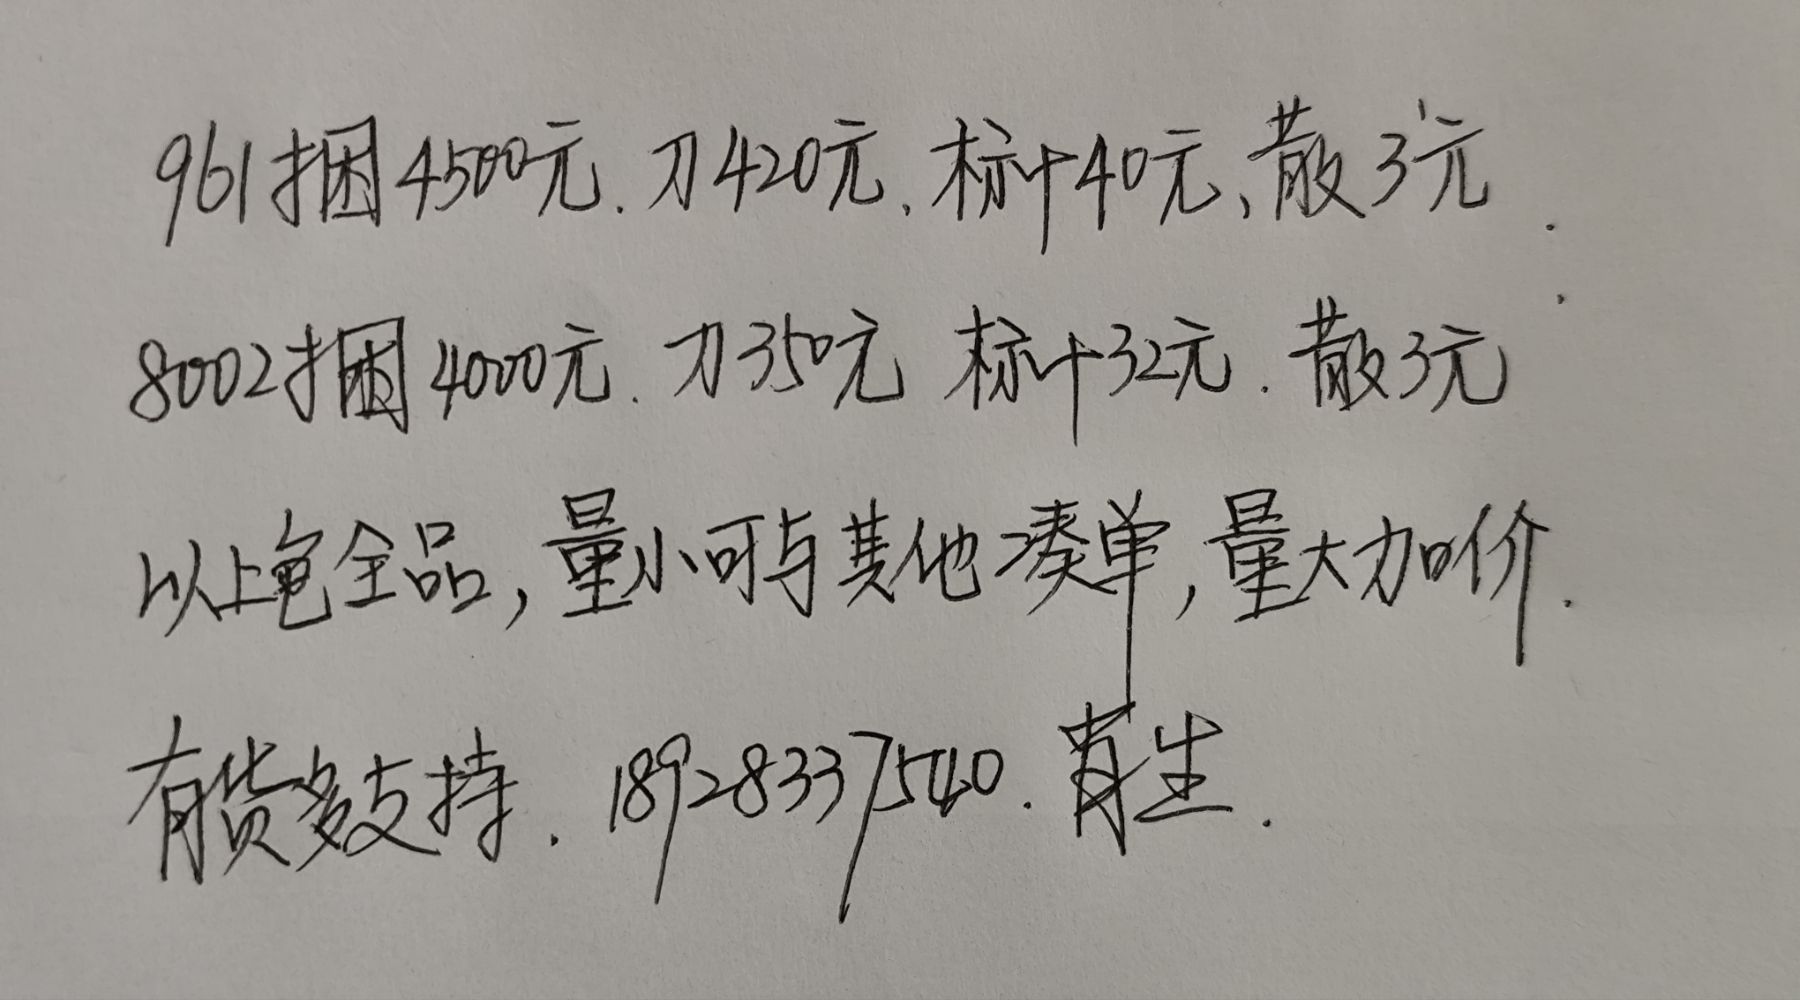 961捆4500元.刀420元.标十40元、散3元.
8002捆4000元.刀350元 标十32元.散3元
以上包全品,量小可与其他凑单,量大加价.
有货多支持.18928337540.肖生.